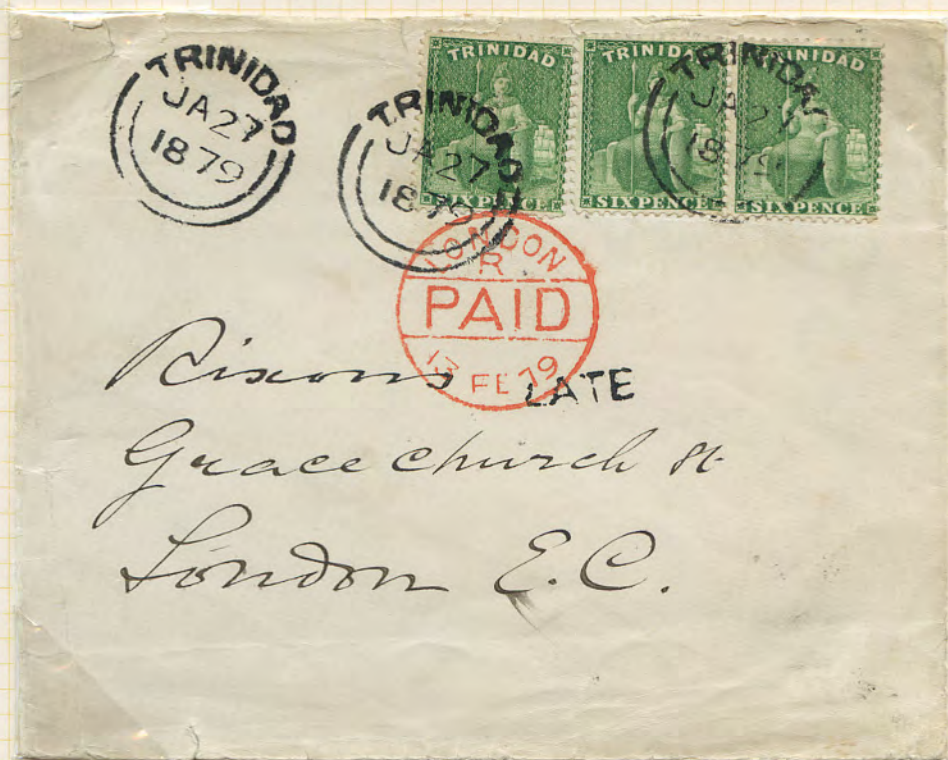 TRINIDAD
JA 27
1879
TRINIDAD
JA 27
1879
TRINIDAD
SIX PENCE
TRINIDAD
SIX PENCE
TRINIDAD
JA 27
TRINIDAD
SIX PENCE
LONDON
R
PAID
13 FE 79
LATE
Rixons
Gracechurch St
London E.C.